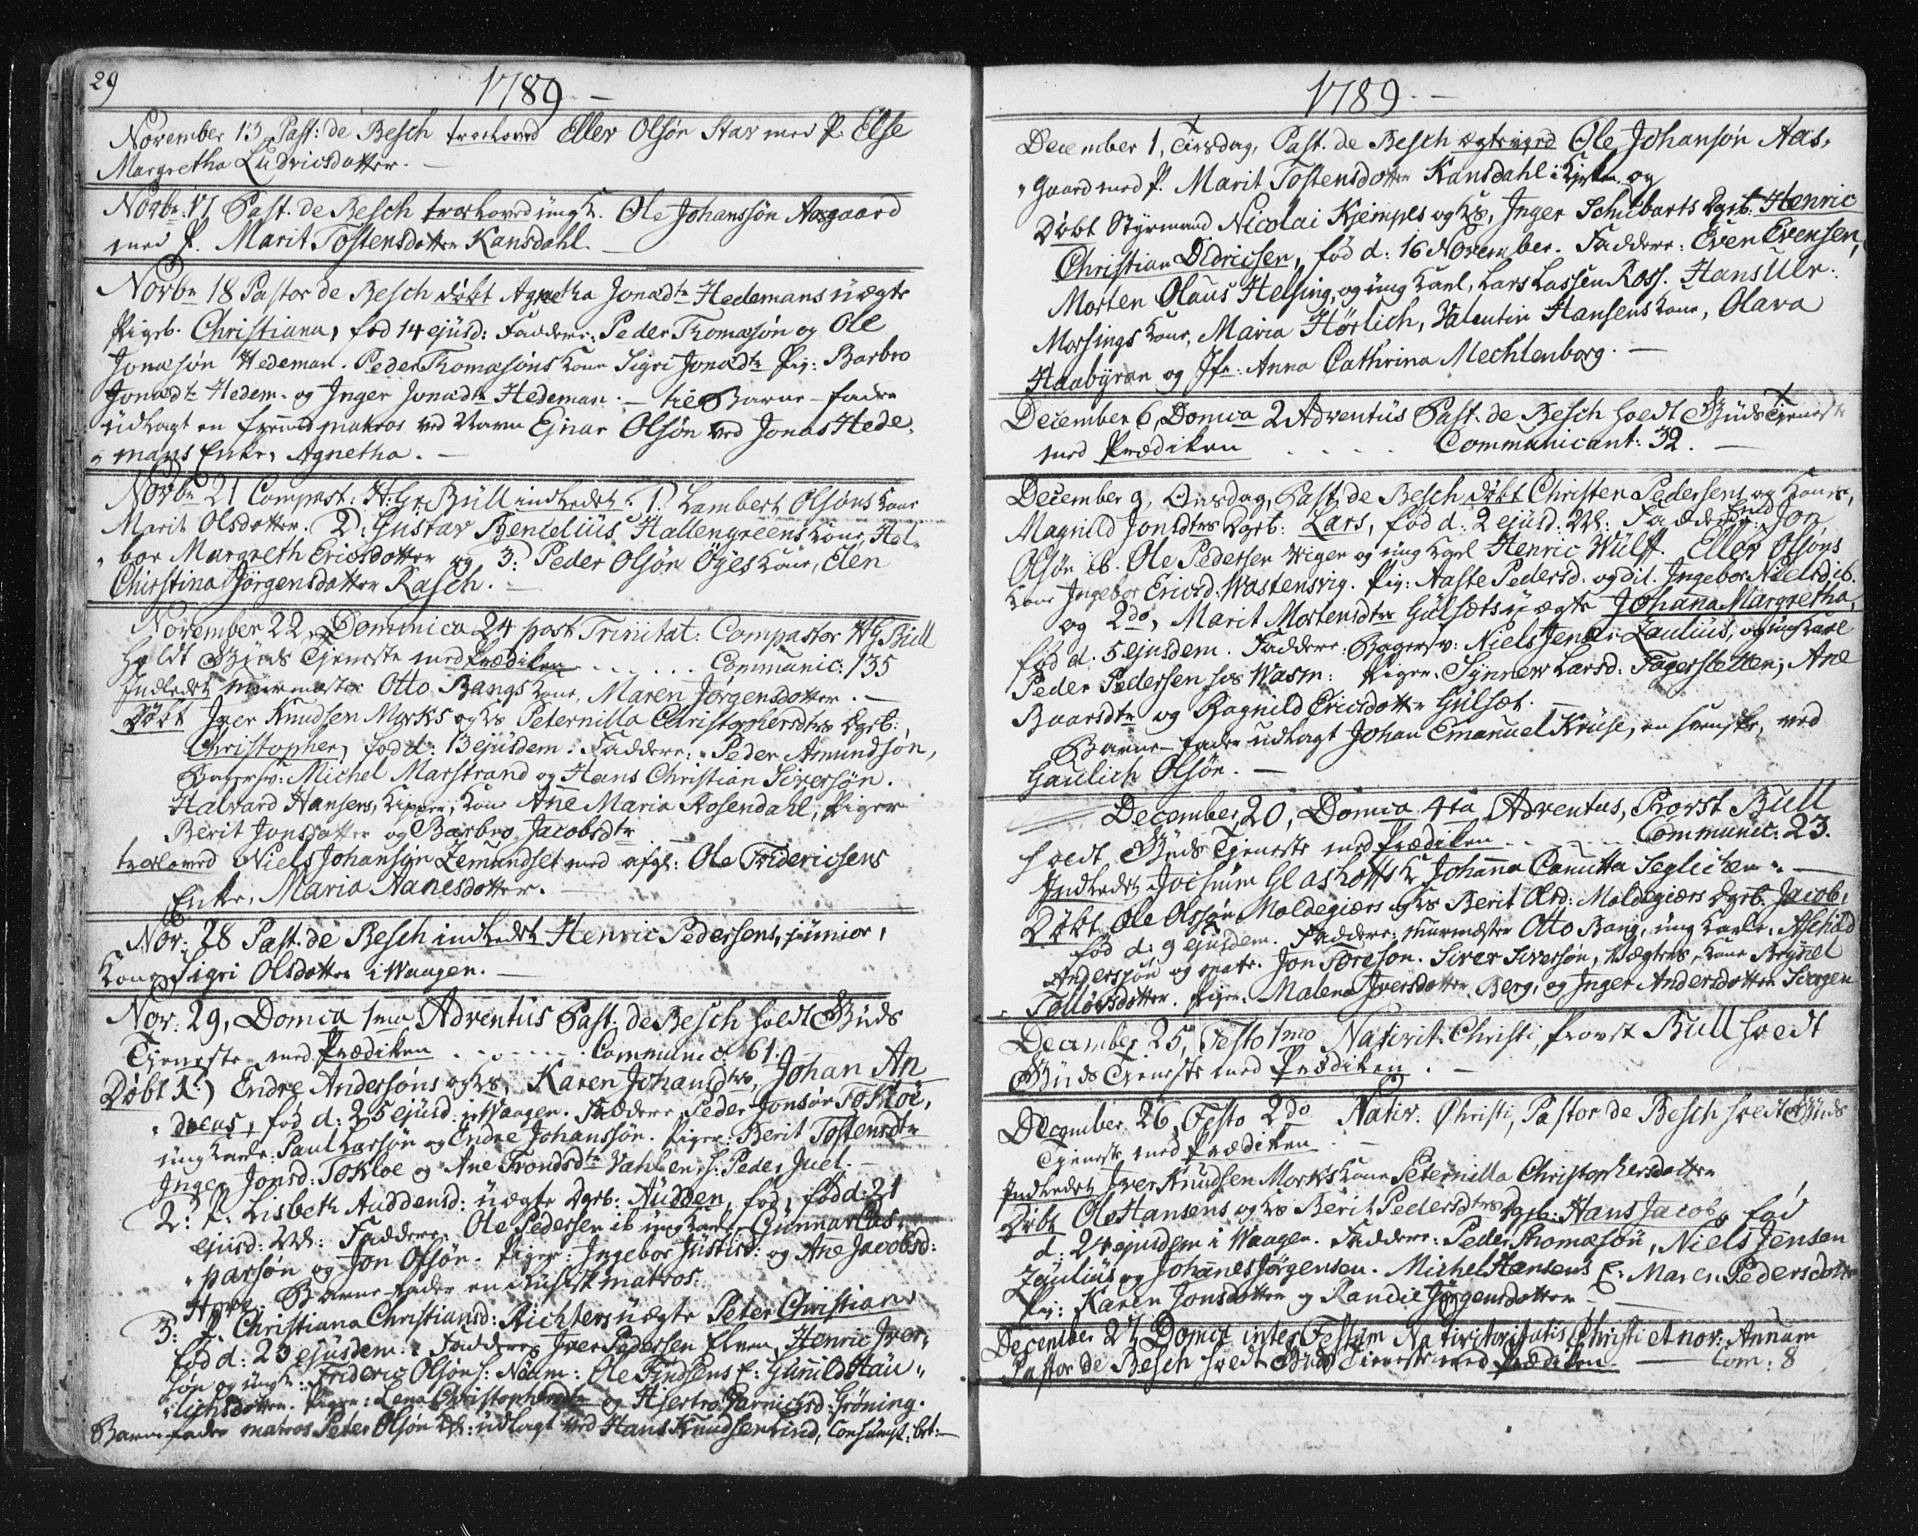 29
1789 —
November 13 Past: de Besch troeloved Eller Olsön Stav med P. Else
Margretha Ludvicsdotter. —
Novbr. 17 Past. de Besch troeloved ungk. Ole Johanssön Aasgaard
med P. Marit Tostensdotter Kansdahl. —
Novbr 18 Pastor de Besch döbt Agnetha Jonædtr Hedemans uægte
Pigeb. Christiana, fød 14 ejusd: Faddere: Peder Thomæsön og Ole
Jonæsön Hedeman. Peder Thomæsöns Kone Sigri Jonædtr Pig: Barbro
Jonædtr Hedem. og Inger Jonædtr Hedeman. — til Barne-fader
udlagt en fremmed matros ved Navn Ejnar Olsön ved Jonas Hede-
mans Enke, Agnetha. —
Novbr 21 Compast: H: Gr: Büll indledet 1. Lambert Olsöns Kone
Marit Olsdotter. 2: Gustav Bencelius Hallengreens Kone, Hel-
bor Margreth Ericsdotter og 3: Peder Olsön Öyes Kone, Elen
Christina Jörgensdotter Rasch. —
November 22, Dominica 24 post Trinitat: Compastor HG Bull
holdt Guds Tjeneste med Prædiken . . . . . . Communic: 135
Indledet murmæster Otto Bangs Kone, Maren Jörgensdotter. —
Döbt Iver Knudsen Morks og Hs Peternilla Christophersdtrs Dgeb:
Christopher, fød d: 13 ejusdem: Faddere: Peder Amundsön,
Bagersv: Michel Marstrand og Hans Christian Siversön.
Halvard Hansens, Kipper, Kone Ane Maria Rosendahl, Piger
Berit Jonsdotter og Barbro Jacobsdtr
troeloved Niels Johansön Zemundset med afgl: Ole Fridericsens
Enke, Maria Aanesdotter. —
Nov: 28 Past. de Besch indledet Henric Pedersens, junior,
Kone Sigri Olsdotter i Waagen. —
Nov: 29, Domca 1ma Adventus Past: de Besch holdt Guds
Tjeneste med Prædiken . . . . . . Communic: 61. —
Döbt 1:) Endre Andersöns og Hs Karen Johansdtrs, Johan An
dreas, fød d: 25 ejusd: i Waagen. Faddere Peder Jonsön Tokloe,
ung Karle: Paul Larsön og Endre Johanssön. Piger: Berit Tostensdtr
Inger Jonsd: Tokloe og Ane Trondsdtr Vahlen, h: Peder Juel. —
2: P: Lisbeth Auddensd: uægte Dgeb: Audden, fød, fød d: 21
ejusd: Faddere: Ole Pedersen ib ung Karle Gunnar Cas-
parsön og Jon Olsön. Piger: Ingebor Justisd: og Ane Jacobsd:
Hove. Barne-fader en Rusisk matros.
3: P. Christiana Christiansd: Richters uægte Peter Christian,
fød d: 23 ejusdem: Faddere, Iver Pedersen Elven, Henric Iver-
sön og ungk: Frideric Olsön h: Næum: Ole Findsens E: Gunild Hau-
lichsdotter. Piger: Lena Christophersdtr og Hjertro Jarnichsd: Gröning.
Barne-fader matros Peter Olsön udlagt ved Hans Knudsen Lind, Consumpt: bet:—
1789. —
December 1, Tirsdag, Past. de Besch ægteviged Ole Johansön Aas-
gaard med P. Marit Tostensdotter Kansdahl i Kirken og
Döbt Styrmand Nicolai Kjempes og Hs, Inger Schubarts Dgeb: Henric
Christian Didricsen, fød d: 16 November. Faddere: Even Evensen,
Morten Olaus Helsing, og ung Karl, Lars Lassen Ross. Hans Ulr:
Morsings Kone, Maria Hörlich, Valentin Hansens Kone, Olava
Haabyran og Jfr: Anna Cathrina Mechlenborg. —
December 6, Domca 2 Adventus Past. de Besch holdt Guds Tjeneste
med Prædiken . . . . . Communicant: 32. —
December 9, Onsdag, Past. de Besch döbt Christen Pedersens og Kones,
Magnild Jonsdtrs Dgeb: Lars, fød d: 2 ejusd: Faddere: Jon
Olsön ib. Ole Pedersen Wigen og ung Karl Henric Wulff. Eller Olsöns
Kone Ingebor Ericsd: Wastensvig. Pig: Aaste Pedersd: og dit. Ingebor Nielsd: ib.
og 2do, Marit Mortensdtr Gulsets uægte Johanna Margretha,
fød d: 5 ejusdem. Faddere: Bagersv: Niels Jensen Zaulius, og ung Karl
Peder Pedersen hos Wasm: Piger: Synnev Larsd: Fagersletten, Ane
Baarsdtr og Ragnild Ericsdotter Gulset.
Barne-fader udlagt Johan Emanuel Kruse, en svensk, ved
Gaulich Olsön. —
December 20, Domca 4ta Adventus, Provst Bull
holdt Guds Tjeneste med Prædiken . . . . . Communic: 23.
Indledet Jochum Glashotts K Johanna Camitta Seglitzen. —
Döbt Ole Olssön Moldegiærs og Hs Berit Olsd: Moldegiærs Dgeb. Jacob,
fød d: 9 ejusdem. Faddere: murmæster Otto Bang, ung Karle, Afshild
Anderssön og matr. Jon Toreson. Siver Siversön, Vægters, Kone Brynel
Tollövsdotter. Piger: Malena Iversdotter Berg, og Inger Andersdotter Scorgen
December 25, Festo 1mo Nativit: Christi, provst Bull holdt
Guds Tjeneste med Prædiken. —
December 26, Festo 2do Nativ: Christi, Pastor de Besch holdt Guds
Tjeneste med Prædiken. —
Indledet Iver Knudsen Morks Kone Peternilla Christophersdotter
Döbt Ole Hansens og Hs Berit Pedersdtrs Dgeb: Hans Jacob, fød
d: 24 ejusdem i Waagen. Faddere: Peder Thomæsön, Niels Jensen
Zaulius og Johannes Jörgensen. Michel Hansens E: Maren Pedersdotter
Pig: Karen Jonsdotter og Randie Jörgensdotter —
December 27, Domca inter Festum Nativitatis Christi et nov: Annum
Pastor de Besch holdt Guds Tjeneste med Prædiken. — Com: 8